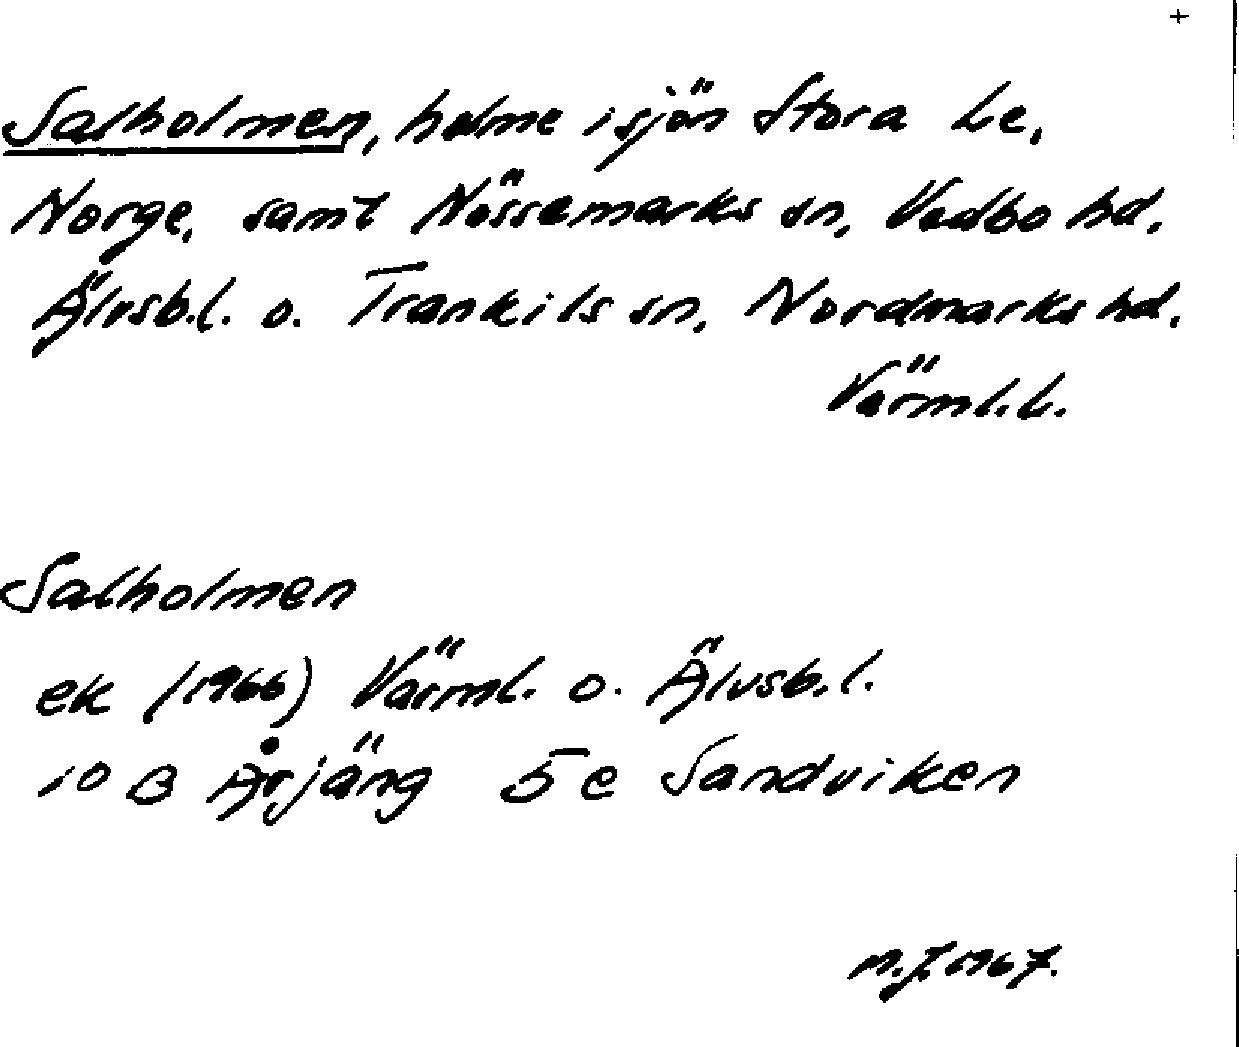 +
Salholmen, holme i sjön Stora Le,
Norge, samt Nössemarks sn, Vedbo hd,
Älvsb.l. o. Trankils sn, Nordmarks hd,
Värml.l.
Salholmen
ek (1966) Värml. o. Älvsb.l.
10 B Årjäng 5 e Sandviken
M.J. 1967.